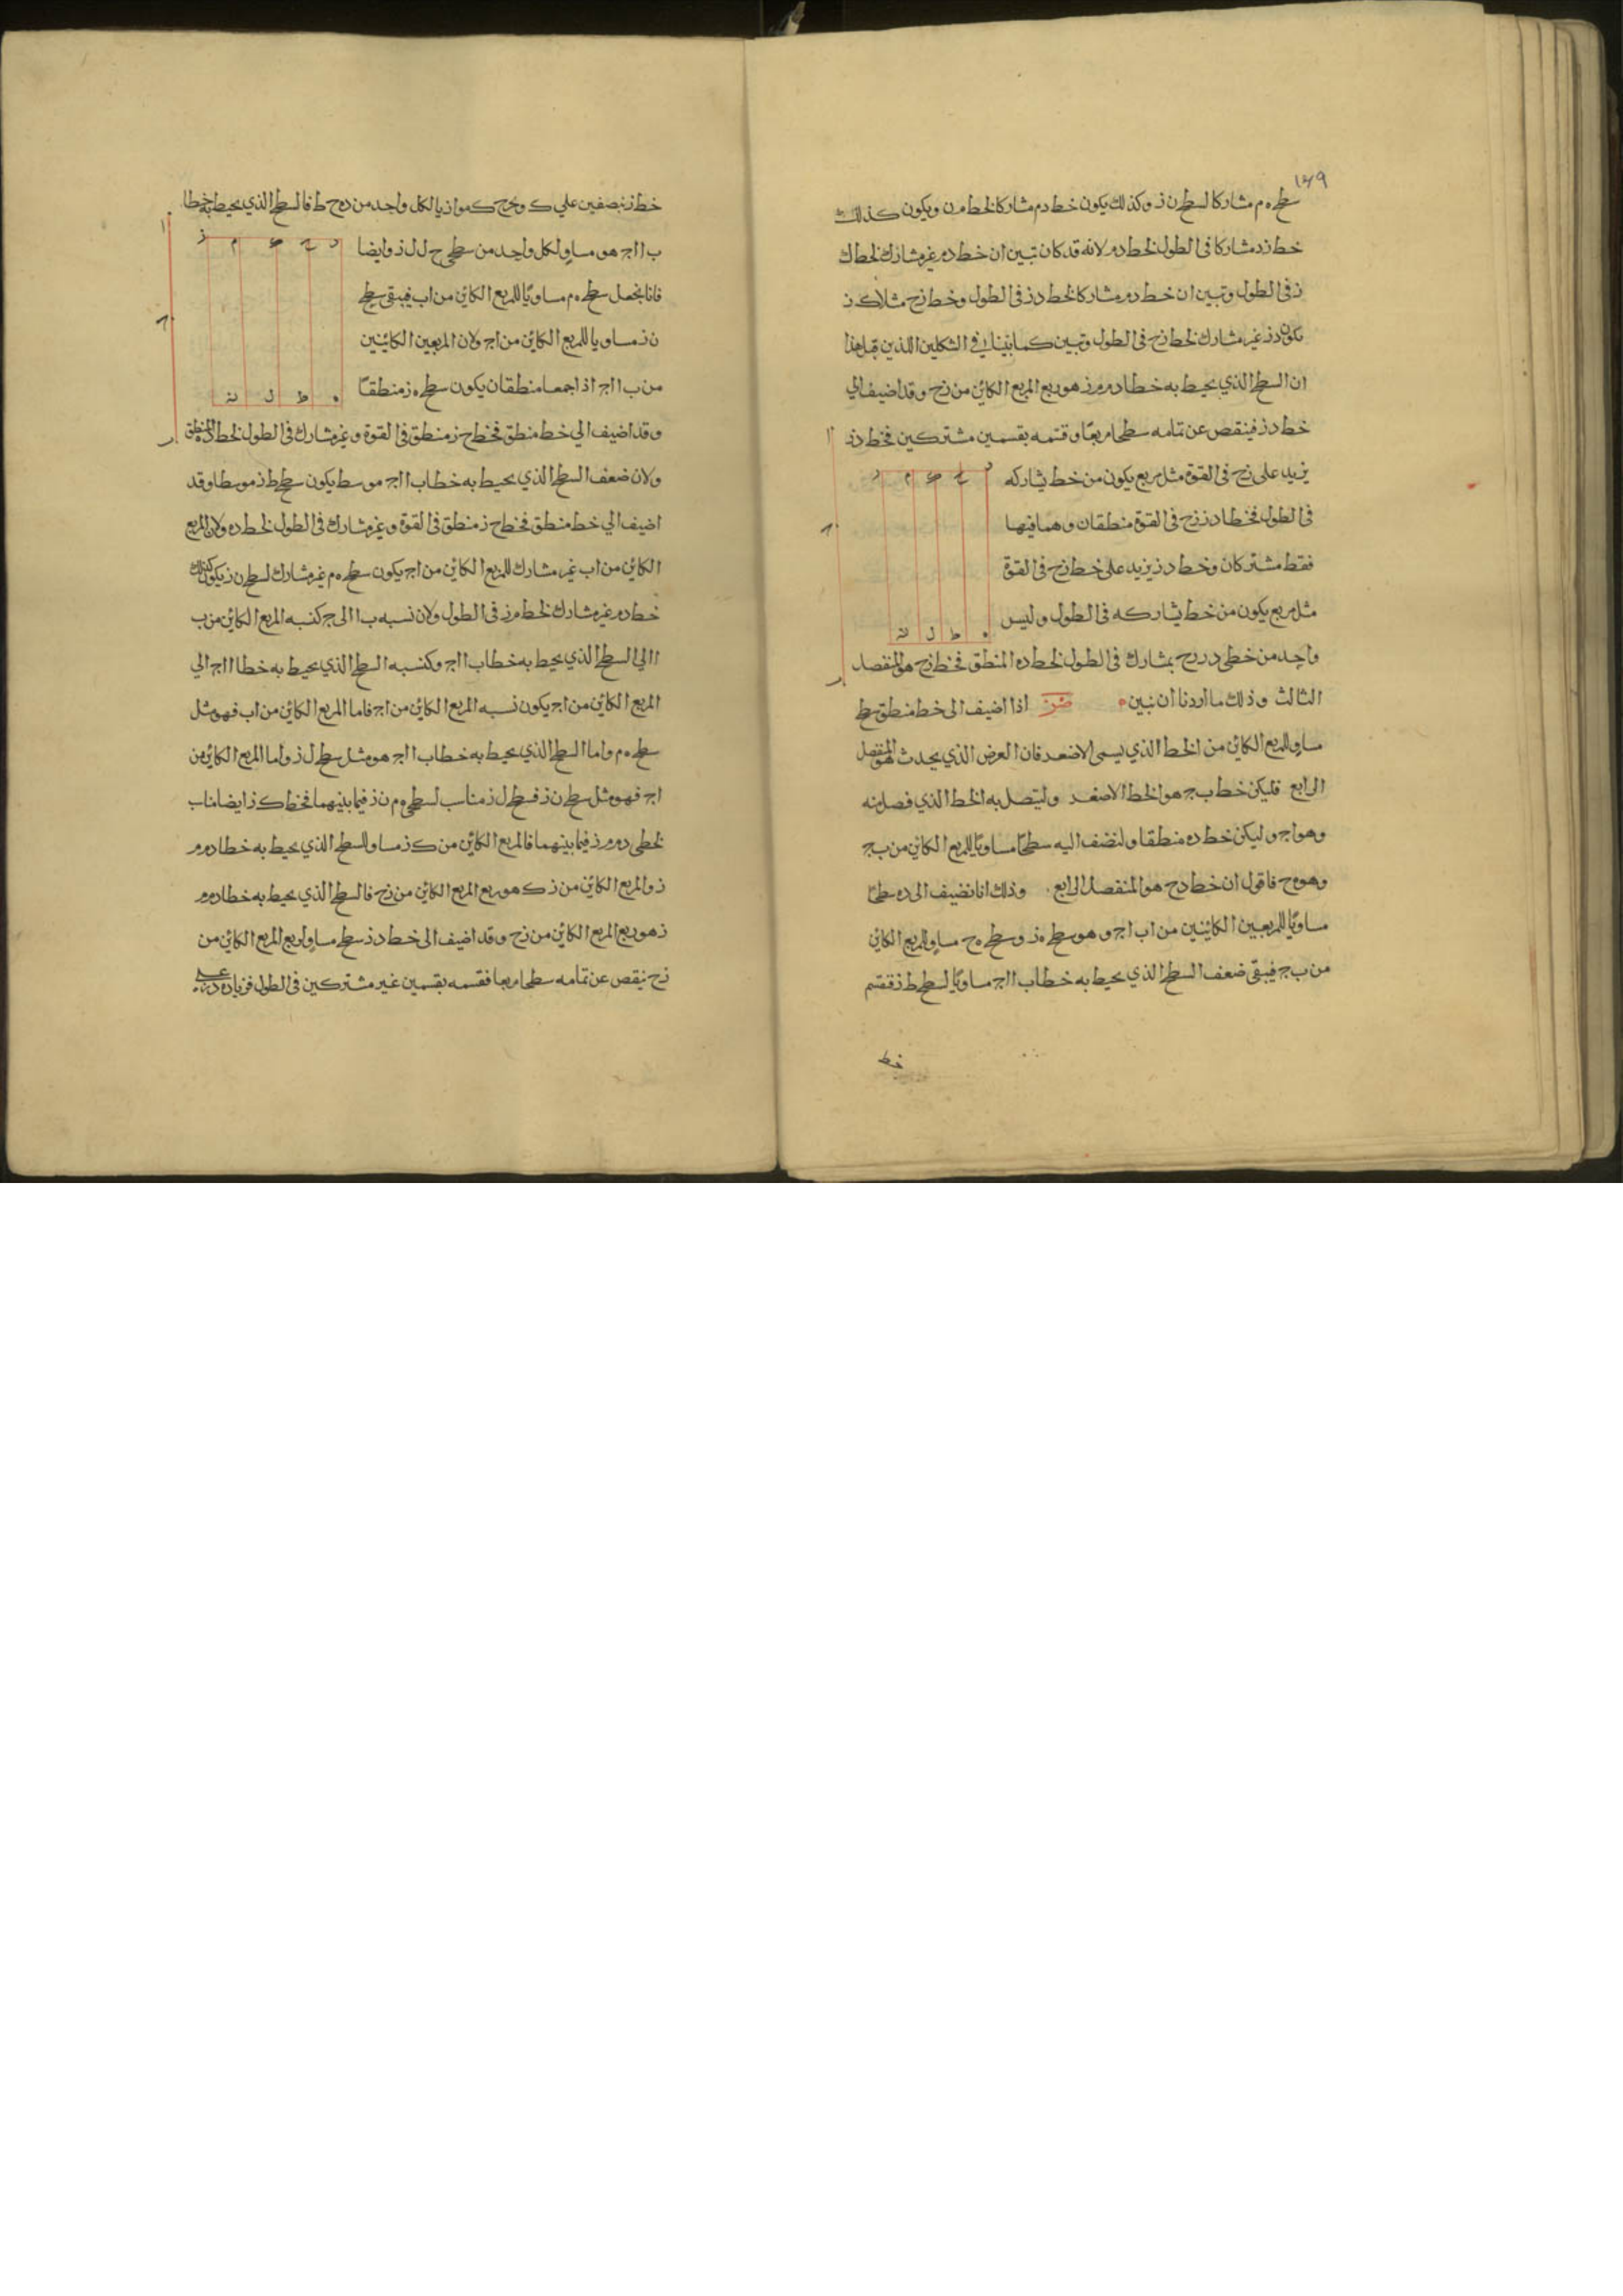 ١٤٩
سطح ه م مشاركا لسطح ن ز وكذلك يكون خط د م مشاركا لخط م ن ويكون كذلك
خط ز د مشاركا في الطول لخط د م لانه قد كان تبين ان خط د م غير مشارك لخط ك
ز في الطول وتبين ان خط د م مشاركا لخط د ز في الطول وخط ز ح مثلا ك ز
يكون د ز غير مشارك لخط ز ح في الطول وتبين كما بينا في الشكلين اللذين قبل هذا
ان السطح الذي يحيط به خطا د م م ز هو ربع المربع الكائن من ز ح وقد اضيف الي
خط د ز فينقص عن تمامه سطحا مربعا وقسمه بقسمين مشتركين فخط د ز
يزيد على ز ح في القوة مثل مربع يكون من خط يشاركه
في الطول فخطا د ز ز ح في القوة منطقان وهما فيها
فقط مشتركان وخط د ز يزيد على خط ز ح في القوة
مثل مربع يكون من خط يشاركه في الطول وليس
واحد من خطي د ز ز ح بمشارك في الطول لخط د ه المنطق فخط ز ح هو المنفصل
الثالث وذلك ما اردنا ان نبين ه صز اذا اضيف الى خط منطق سطح
مساو للمربع الكائن من الخط الذي يسمى الاصغر فان العرض الذي يحدث هو المنفصل
الرابع فليكن خط ب ج هو الخط الاصغر وليتصل به الخط الذي فصل منه
وهو ا ج وليكن خط د ه منطقا ولنضف اليه سطحا مساويا للمربع الكائن من ب ج
وهو ه ح فاقول ان خط د ح هو المنفصل الرابع وذلك انا نضيف الى د ه سطحا
مساويا للمربعين الكائنين من ا ب ا ج وهو سطح ه ز وسطح ه ح مساو للمربع الكائن
من ب ج فيبقى ضعف السطح الذي يحيط به خطا ب ا ا ج مساويا لسطح ط ز فنقسم
خط
خط ز ح بنصفين علي ك ونخرج ك ل موازيا لكل واحد من د ه ح ط فالسطح الذي يحيط به خطا
ب ا ا ج هو مساو لكل واحد من سطحي ح ل ل ز وايضا
فانا نجعل سطح ه م مساويا للمربع الكائن من ا ب فيبقى سطح
ن ز مساويا للمربع الكائن من ا ج ولان المربعين الكائنين
من ب ا ا ج اذا جمعا منطقان يكون سطح ه ز منطقا
وقد اضيف الي خط منطق فخط ح ز منطق في القوة وغير مشارك في الطول لخط د ه المنطق
ولان ضعف السطح الذي يحيط به خطا ب ا ا ج موسط يكون سطح ط ز موسطا وقد
اضيف الي خط منطق فخط ح ز منطق في القوة وغير مشارك في الطول لخط د ه ولان المربع
الكائن من ا ب غير مشارك للمربع الكائن من ا ج يكون سطح ه م غير مشارك لسطح ن ز يكون كذلك
خط د م غير مشارك لخط م ز في الطول ولان نسبه ب ا الى ا ج كنسبه المربع الكائن من ب
ا الي السطح الذي يحيط به خطا ب ا ا ج وكنسبه السطح الذي يحيط به خطا ب ا ا ج الي
المربع الكائن من ا ج يكون نسبه المربع الكائن من ا ج فاما المربع الكائن من ا ب فهو مثل
سطح ه م واما السطح الذي يحيط به خطا ب ا ا ج هو مثل سطح ل ز واما المربع الكائن من
ا ج فهو مثل سطح ن ز فسطح ل ز مناسب لسطحي ه م ن ز فيما بينهما فخط ك ز ايضا مناسب
لخطي د م م ز فيما بينهما فالمربع الكائن من ك ز مساو للسطح الذي يحيط به خطا د م م
ز والمربع الكائن من ز ك هو ربع المربع الكائن من ز ح فالسطح الذي يحيط به خطا د م م
ز هو ربع المربع الكائن من ز ح وقد اضيف الى خط د ز سطح مساو لربع المربع الكائن من
ز ح ينقص عن تمامه سطحا مربعا فقسمه بقسمين غير مشتركين في الطول فزيادة د ز على